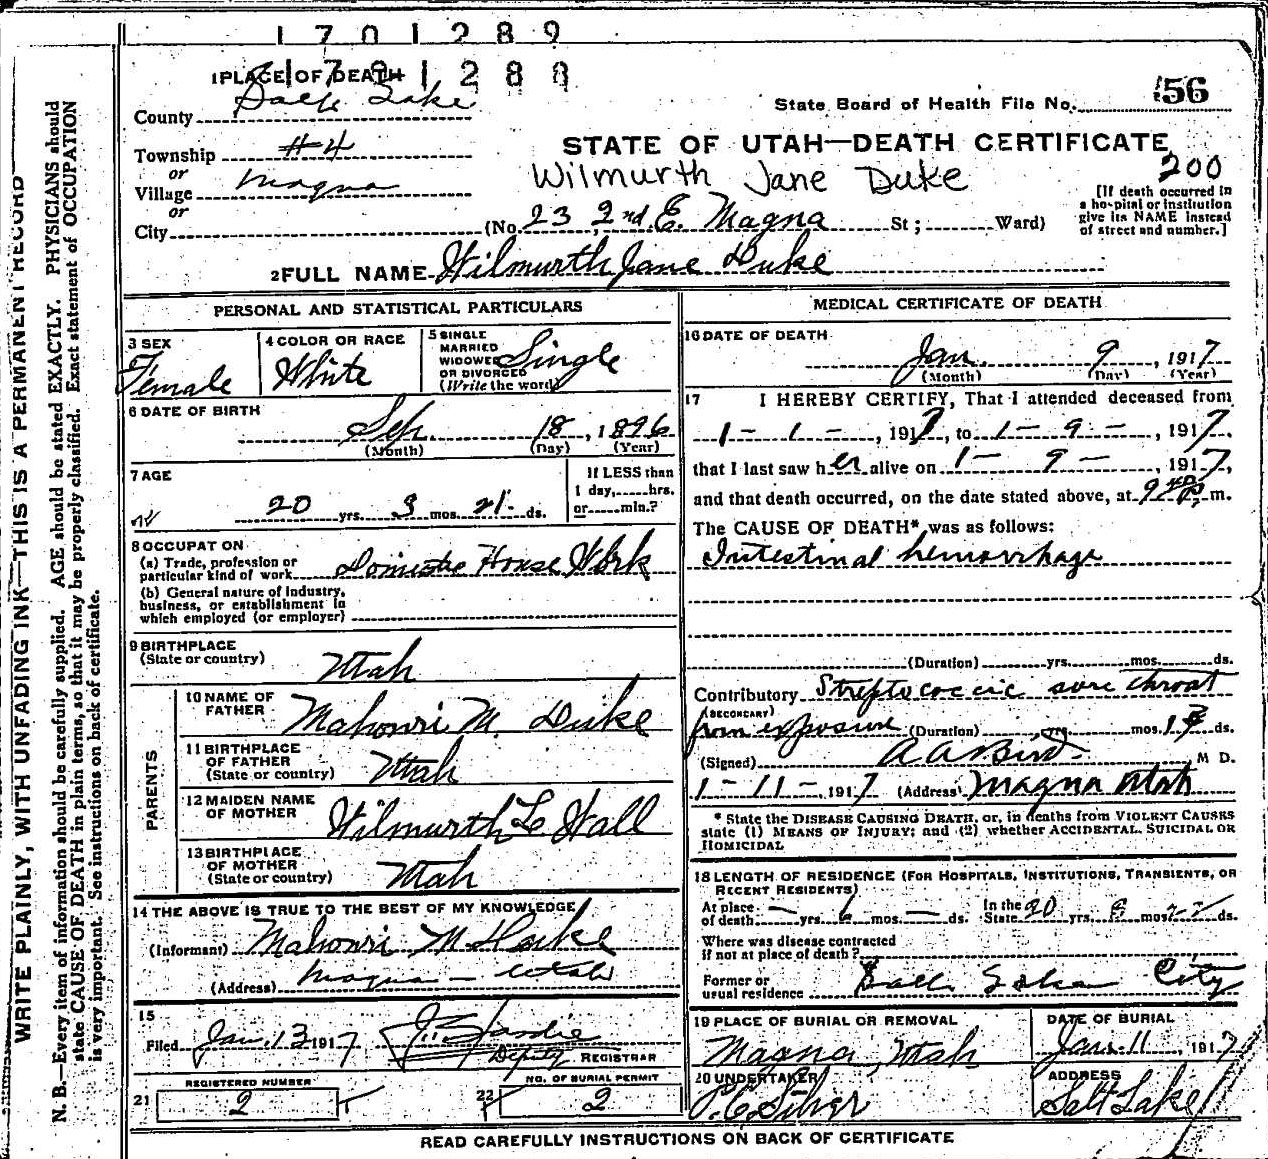 1701289
1 PLACE OF DEATH
County Salt Lake
State Board of Health File No. 56
Township #4
or
Village Magna
or
City
STATE OF UTAH—DEATH CERTIFICATE
200
Wilmurth Jane Duke
(No. 23, 2nd. E. Magna St; Ward)
[If death occurred in
a hospital or institution
give its NAME instead
of street and number.]
2 FULL NAME Wilmurth Jane Duke
PERSONAL AND STATISTICAL PARTICULARS
3 SEX
Female
4 COLOR OR RACE
White
5 SINGLE
MARRIED
WIDOWED
OR DIVORCED
(Write the word)
Single
6 DATE OF BIRTH
Sep. 18, 1896
(Month) (Day) (Year)
7 AGE
20 yrs. 3 mos. 21 ds.
If LESS than
1 day, hrs.
or min.?
8 OCCUPATION
(a) Trade, profession or
particular kind of work Domistic House Work
(b) General nature of Industry,
business, or establishment in
which employed (or employer)
9 BIRTHPLACE
(State or country)
Utah
PARENTS
10 NAME OF
FATHER
Mahonri M. Duke
11 BIRTHPLACE
OF FATHER
(State or country)
Utah
12 MAIDEN NAME
OF MOTHER
Wilmurth L Hall
13 BIRTHPLACE
OF MOTHER
(State or country)
Utah
14 THE ABOVE IS TRUE TO THE BEST OF MY KNOWLEDGE
(Informant) Mahonri M Duke
(Address) Magna - Utah
15
Filed Jan. 13 1917
Deputy REGISTRAR
REGISTERED NUMBER
21 2
NO. OF BURIAL PERMIT
22 2
MEDICAL CERTIFICATE OF DEATH
16 DATE OF DEATH
Jan. 9, 1917
(Month) (Day) (Year)
17 I HEREBY CERTIFY, That I attended deceased from
1-1-, 1917, to 1-9-, 1917,
that I last saw her alive on 1-9-, 1917,
and that death occurred, on the date stated above, at m.
The CAUSE OF DEATH* was as follows:
Intestinal hemorrhage
(Duration) yrs. mos. ds.
Contributory Streptococcic sore throat
(SECONDARY)
from exposure (Duration) yrs. mos. ds.
(Signed) A A Bird. M D.
1-11-, 1917 (Address) Magna Utah
* State the DISEASE CAUSING DEATH, or, in deaths from VIOLENT CAUSES
state (1) MEANS OF INJURY; and (2) whether ACCIDENTAL, SUICIDAL OR
HOMICIDAL
18 LENGTH OF RESIDENCE (FOR HOSPITALS, INSTITUTIONS, TRANSIENTS, OR
RECENT RESIDENTS)
At place
of death — yrs. 6 mos. — ds.
In the
State 20 yrs. mos. ds.
Where was disease contracted
if not at place of death?
Former or
usual residence Salt Lake City
19 PLACE OF BURIAL OR REMOVAL
Magna, Utah
DATE OF BURIAL
Jan. 11, 1917
20 UNDERTAKER
ADDRESS
Salt Lake
READ CAREFULLY INSTRUCTIONS ON BACK OF CERTIFICATE
WRITE PLAINLY, WITH UNFADING INK—THIS IS A PERMANENT RECORD
N. B.—Every item of information should be carefully supplied. AGE should be stated EXACTLY. PHYSICIANS should
state CAUSE OF DEATH in plain terms, so that it may be properly classified. Exact statement of OCCUPATION
is very important. See instructions on back of certificate.